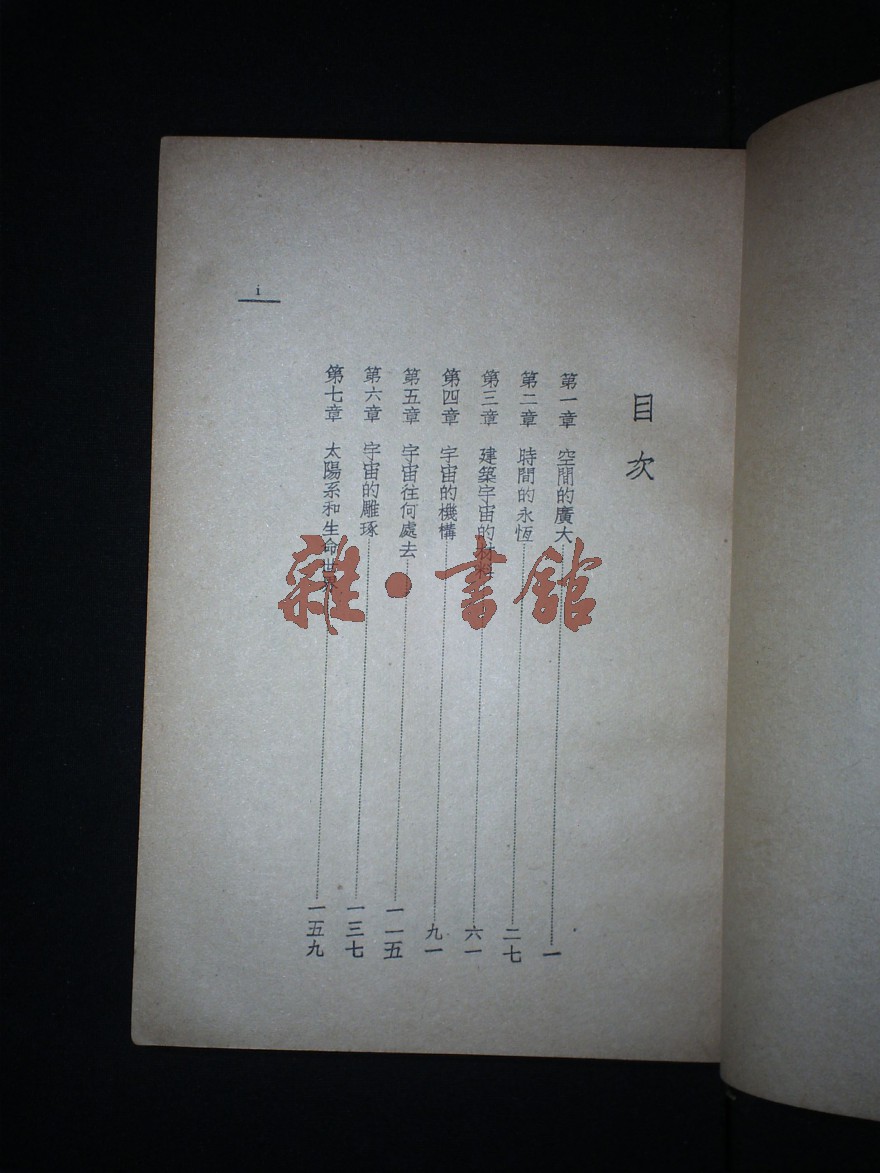 目次
第一章 空間的廣大 一
第二章 時間的永恆 二七
第三章 建築宇宙的材料 六一
第四章 宇宙的機構 九一
第五章 宇宙往何處去 一一五
第六章 宇宙的雕琢 一三七
第七章 太陽系和生命世界 一五九
i
雜·書館